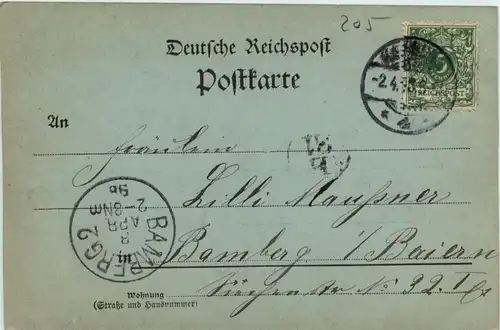 205
Deutsche Reichspost
Postkarte
REICHSPOST
-2.4.98
An
Fräulein
Lilli Maußner
in Bamberg i/Baiern
N° 32. I
BAMBERG 2
3
APR
2-3N
98
Wohnung
(Straße und Hausnummer)